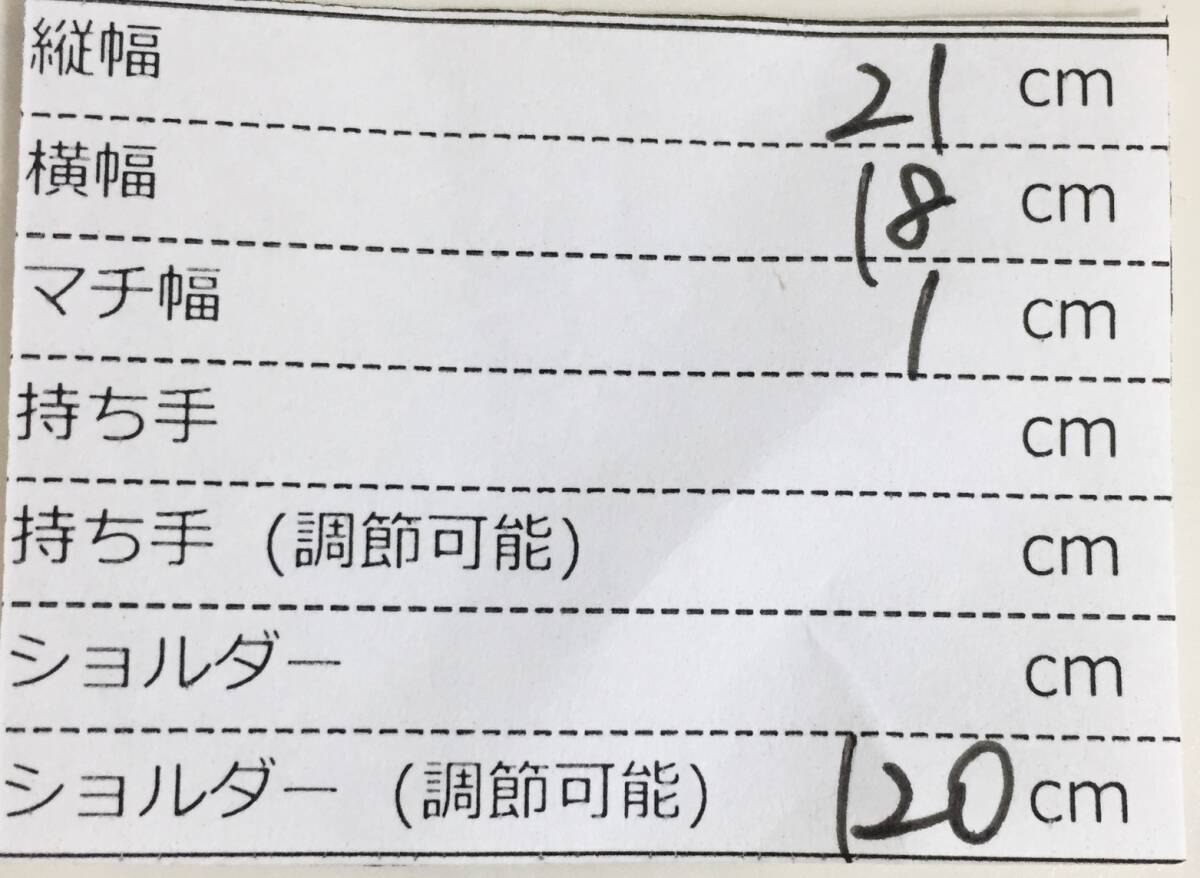 縦幅 21 cm
横幅 18 cm
マチ幅 1 cm
持ち手 cm
持ち手 (調節可能) cm
ショルダー cm
ショルダー (調節可能) 120 cm